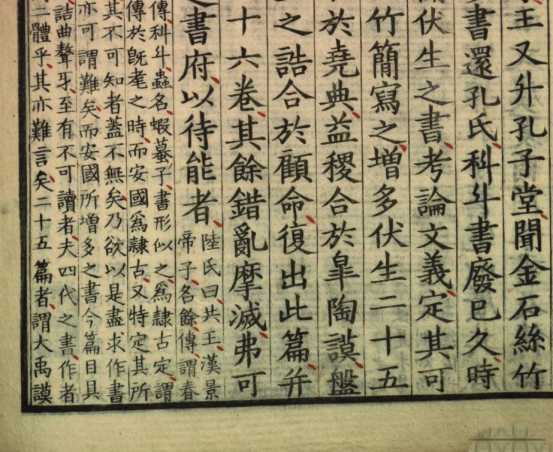 王又升孔子堂聞金石絲竹
書還孔氏科斗書廢已久時
伏生之書考論文義定其可
竹簡寫之增多伏生二十五
於堯典益稷合於皐陶謨盤
之誥合於顧命復出此篇并
十六卷其餘錯亂摩滅弗可
書府以待能者
陸氏曰共王漢景
帝子名餘傳謂春
傳科斗蟲名蝦蟇子書形似之爲隸古定謂
傳於旣耄之時而安國爲隸古又特定其所
其不可知者蓋不無矣乃欲以是盡求作書
亦可謂難矣而安國所增多之書今篇目具
詰曲聱牙至有不可讀者夫四代之書作者
二體乎其亦難言矣二十五篇者謂大禹謨